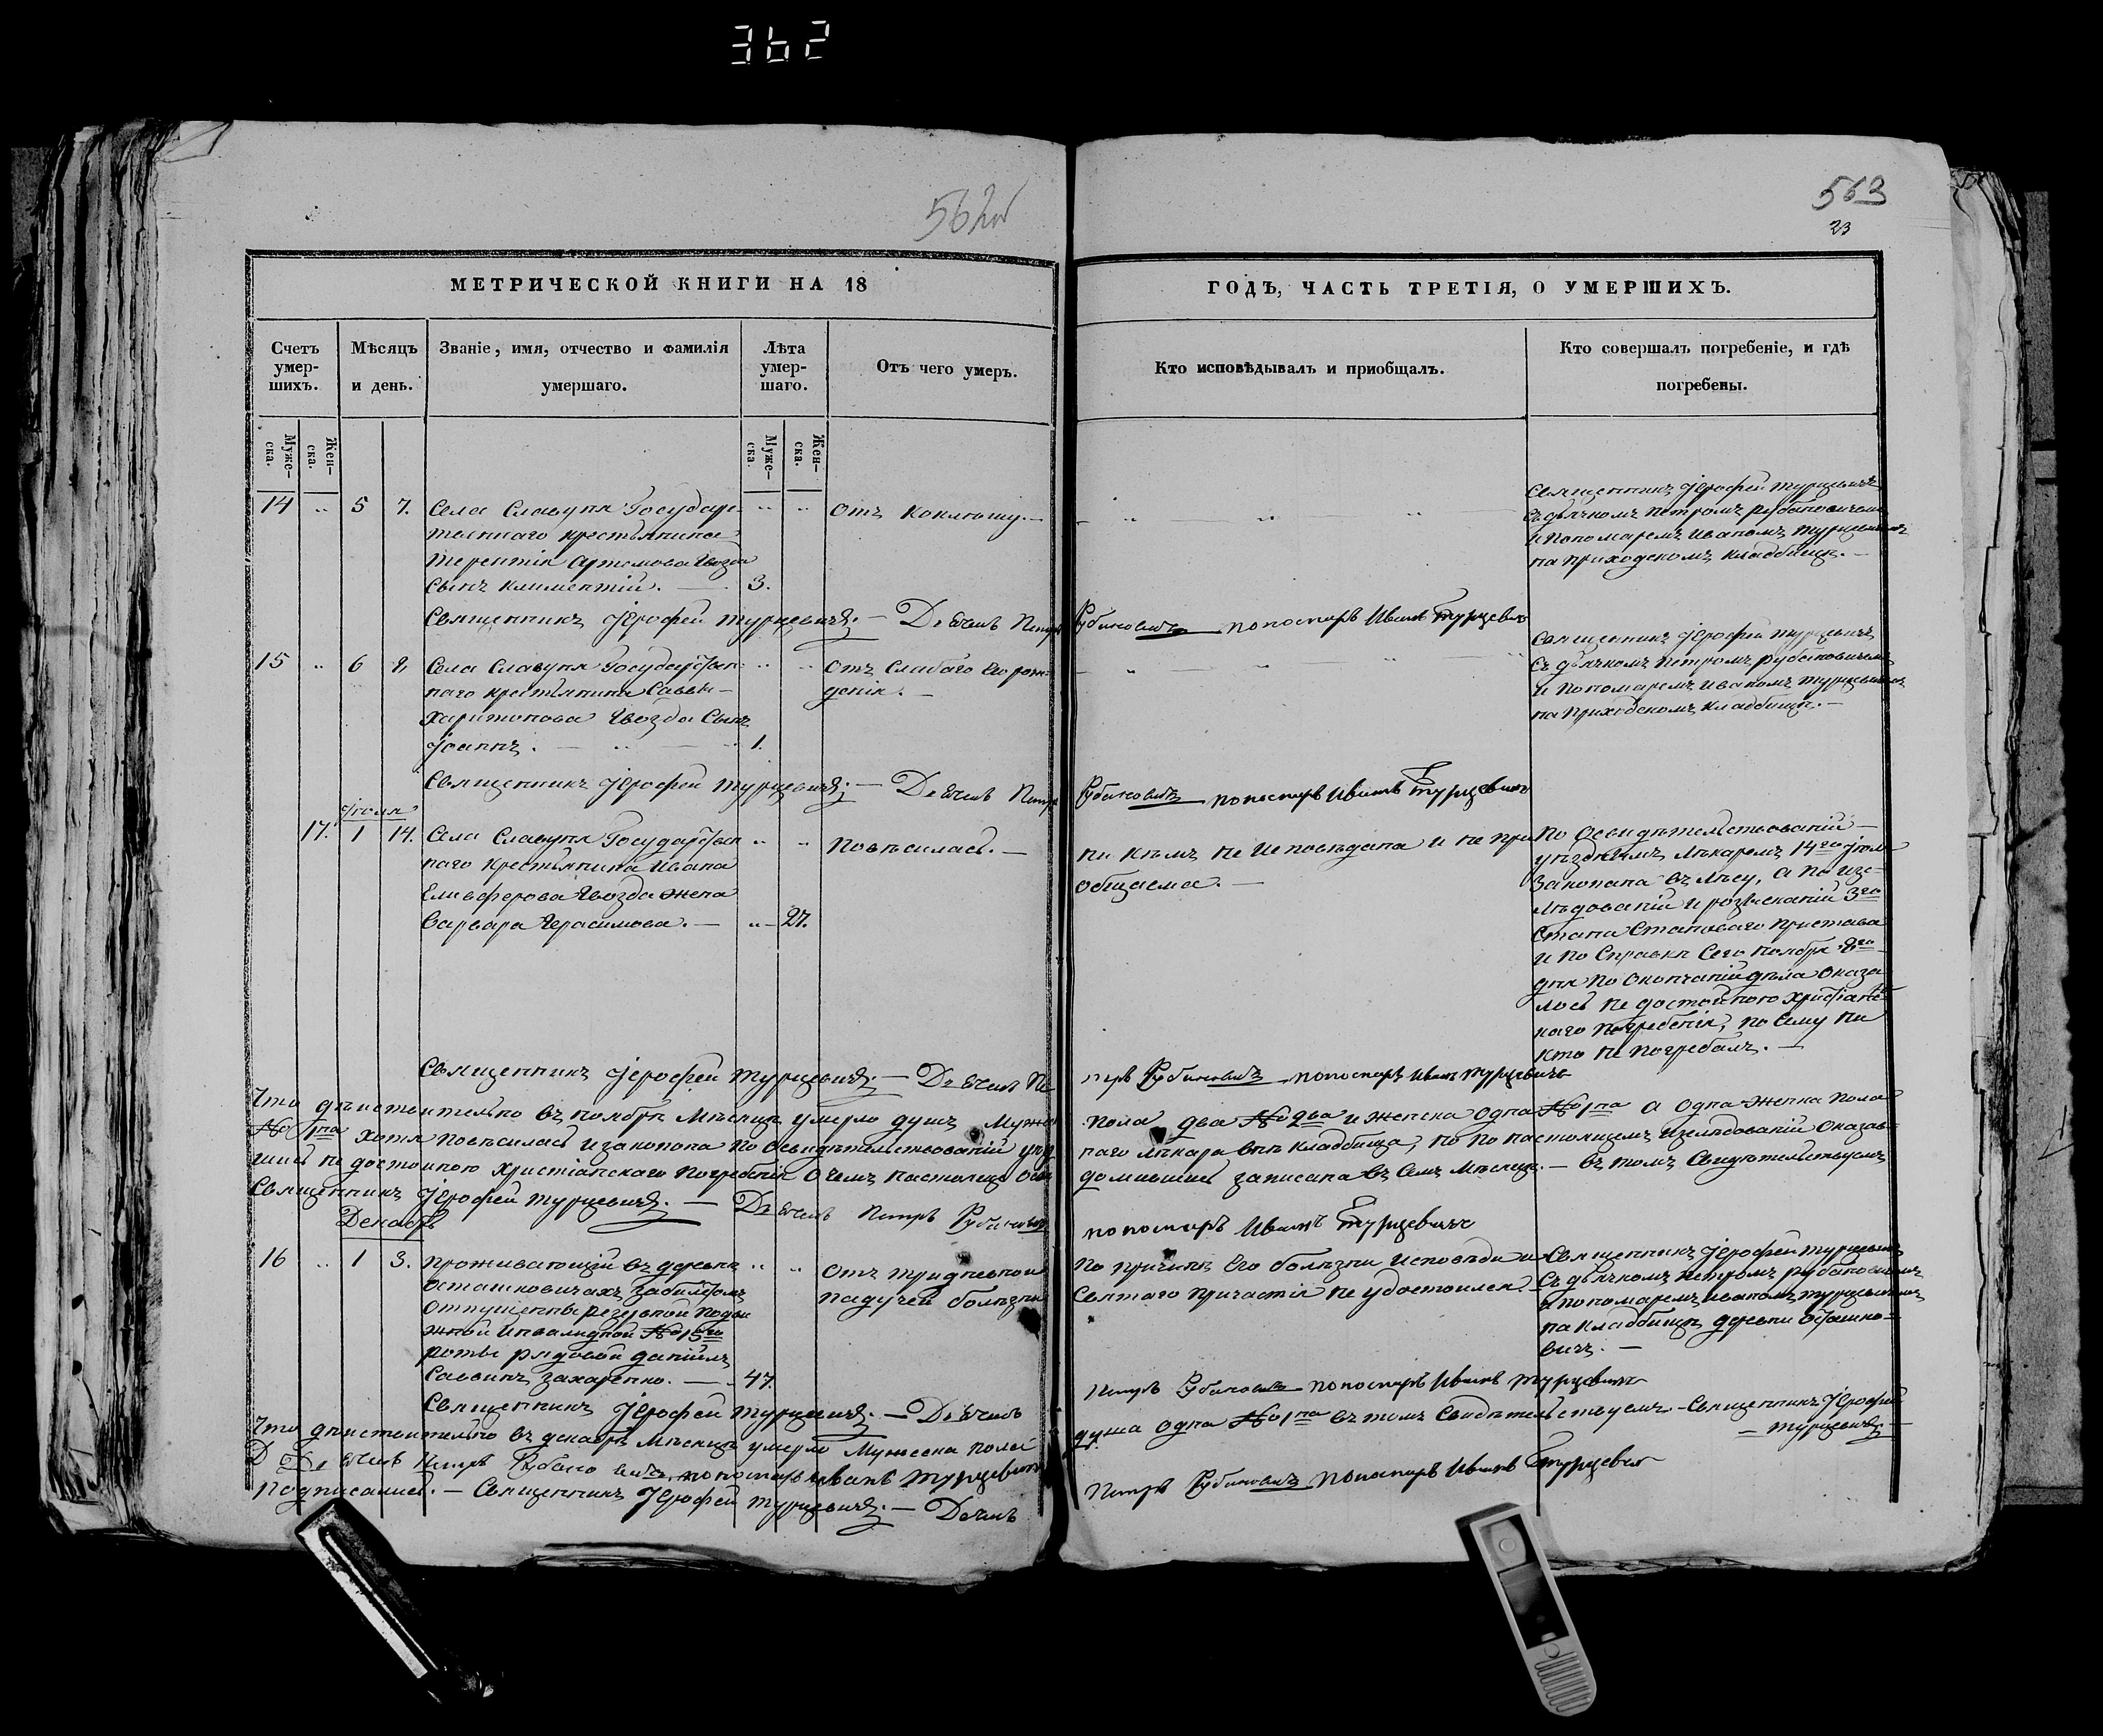 362
562об
563
23
МЕТРИЧЕСКОЙ КНИГИ НА 18
ГОДЪ, ЧАСТЬ ТРЕТІЯ, О УМЕРШИХЪ.
Счетъ умер-шихъ.
Мѣсяцъ и день.
Званіе, имя, отчество и фамилія умершаго.
Лѣта умер-шаго.
Отъ чего умеръ.
Кто исповѣдывалъ и пріобщалъ.
Кто совершалъ погребеніе, и гдѣ погребены.
Муже-ска.
Жен-ска.
Муже-ска.
Жен-ска.
14 " 5 7.
Села Славупя Государ-
твеннаго крестьянина
Терентія Артемова Гвозда
Сынъ Климентій. — 3.
отъ коклюшу. —
Священникъ Іерофей Турцевичъ
Съ дьячкомъ Петромъ Рубановичемъ
и Пономаремъ Иваномъ Турцевичемъ
на Приходскомъ кладбищѣ. —
Священникъ Іерофей Турцевичъ. — Дьячекъ Петръ Рубановичъ пономарь Иванъ Турцевичъ
15 " 6 8.
Села Славупя Государствен
наго крестьянина Саввы —
Харитонова Гвозда Сынъ
Іоаннъ. — 1.
отъ слабаго его рож-
денія. —
Священникъ Іерофей Турцевичъ
Съ дьячкомъ Петромъ Рубановичемъ
и Пономаремъ Иваномъ Турцевичемъ
на Приходскомъ кладбищѣ. —
Священникъ Іерофей Турцевичъ. — Дьячекъ Петръ Рубановичъ пономарь Иванъ Турцевичъ
17. 1 14.
Села Славупя Государствен
наго крестьянина Ивана
Елевферова Гвозда жена
Варвара Герасимова. — 27.
Повѣсилась. —
ни кѣмъ не исповѣдана и не при
общаема. —
По освидѣтельствованіи —
уѣзднымъ лѣкаремъ 14го
закопана въ лѣсу, а по изс-
лѣдованіи и розысканіи 3го
Стана Становаго пристава
и по Справкѣ Сего ноября 8го
дня по окончаніи дѣла оказа
лось не достойною христіанс
каго погребенія, по сему ни
кто не погребалъ. —
Священникъ Іерофей Турцевичъ. — Дьячекъ Петръ Рубановичъ пономарь Иванъ Турцевичъ
Что дѣйствительно въ ноябрѣ мѣсяцѣ умерло душъ Мужес пола два №2ва и женска одна №1на а одна женска пола
№1на хотя повѣсилась и закопана по освидѣтельствованіи уѣзд наго лѣкара внѣ кладбища, но по настоящемъ изслѣдованіи оказав
шись не достойною христіанскаго погребенія о чемъ настоящо осве домившись записана въ семъ мѣсяцѣ. — въ томъ свидѣтельствуемъ
Священникъ Іерофей Турцевичъ. — Дьячекъ Петръ Рубановичъ пономарь Иванъ Турцевичъ
Декабрь
16 " 1 3.
Проживающій въ деревнѣ
Осташковичахъ за билетомъ
отпущенный резервной подви
жной инвалидной №15го
роты рядовой Даніилъ
Саввинъ Захаренко. — 47.
Отъ тридневной
падучей болѣзни
По причинѣ его болѣзни исповѣди и
святаго причастія не удостоился. —
Священникъ Іерофей Турцевичъ
Съ дьячкомъ Петромъ Рубановичемъ
и пономаремъ Иваномъ Турцевичемъ
на кладбищѣ деревни Осташко-
вичъ. —
Священникъ Іерофей Турцевичъ. — Дьячекъ Петръ Рубановичъ пономарь Иванъ Турцевичъ
Что дѣйствительно въ декабрѣ мѣсяцѣ умерло Мужеска пола душа одна №1на въ томъ свидѣтельствуемъ — Священникъ Іерофей Турцевичъ —
Дьячекъ Петръ Рубановичъ, пономарь Иванъ Турцевичъ
Подписались. — Священникъ Іерофей Турцевичъ. — Дьячекъ Петръ Рубановичъ пономарь Иванъ Турцевичъ